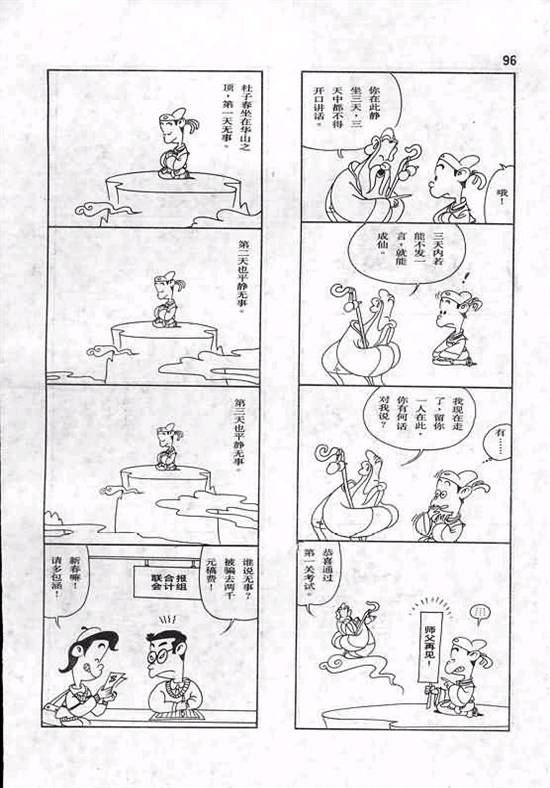 96
你在此静
坐三天，三
天中都不得
开口讲话。
哦！
三天内若
能不发一
言，就能
成仙。
！
我现在走
了，留你
一人在此，
你有何话
对我说？
有……
恭喜通过
第一关考试。
师父再见！
杜子春坐在华山之
顶，第一天无事。
第二天也平静无事。
第三天也平静无事。
联合报
会计组
谁说无事？
被骗去两千
元稿费！
新春嘛！
请多包涵！